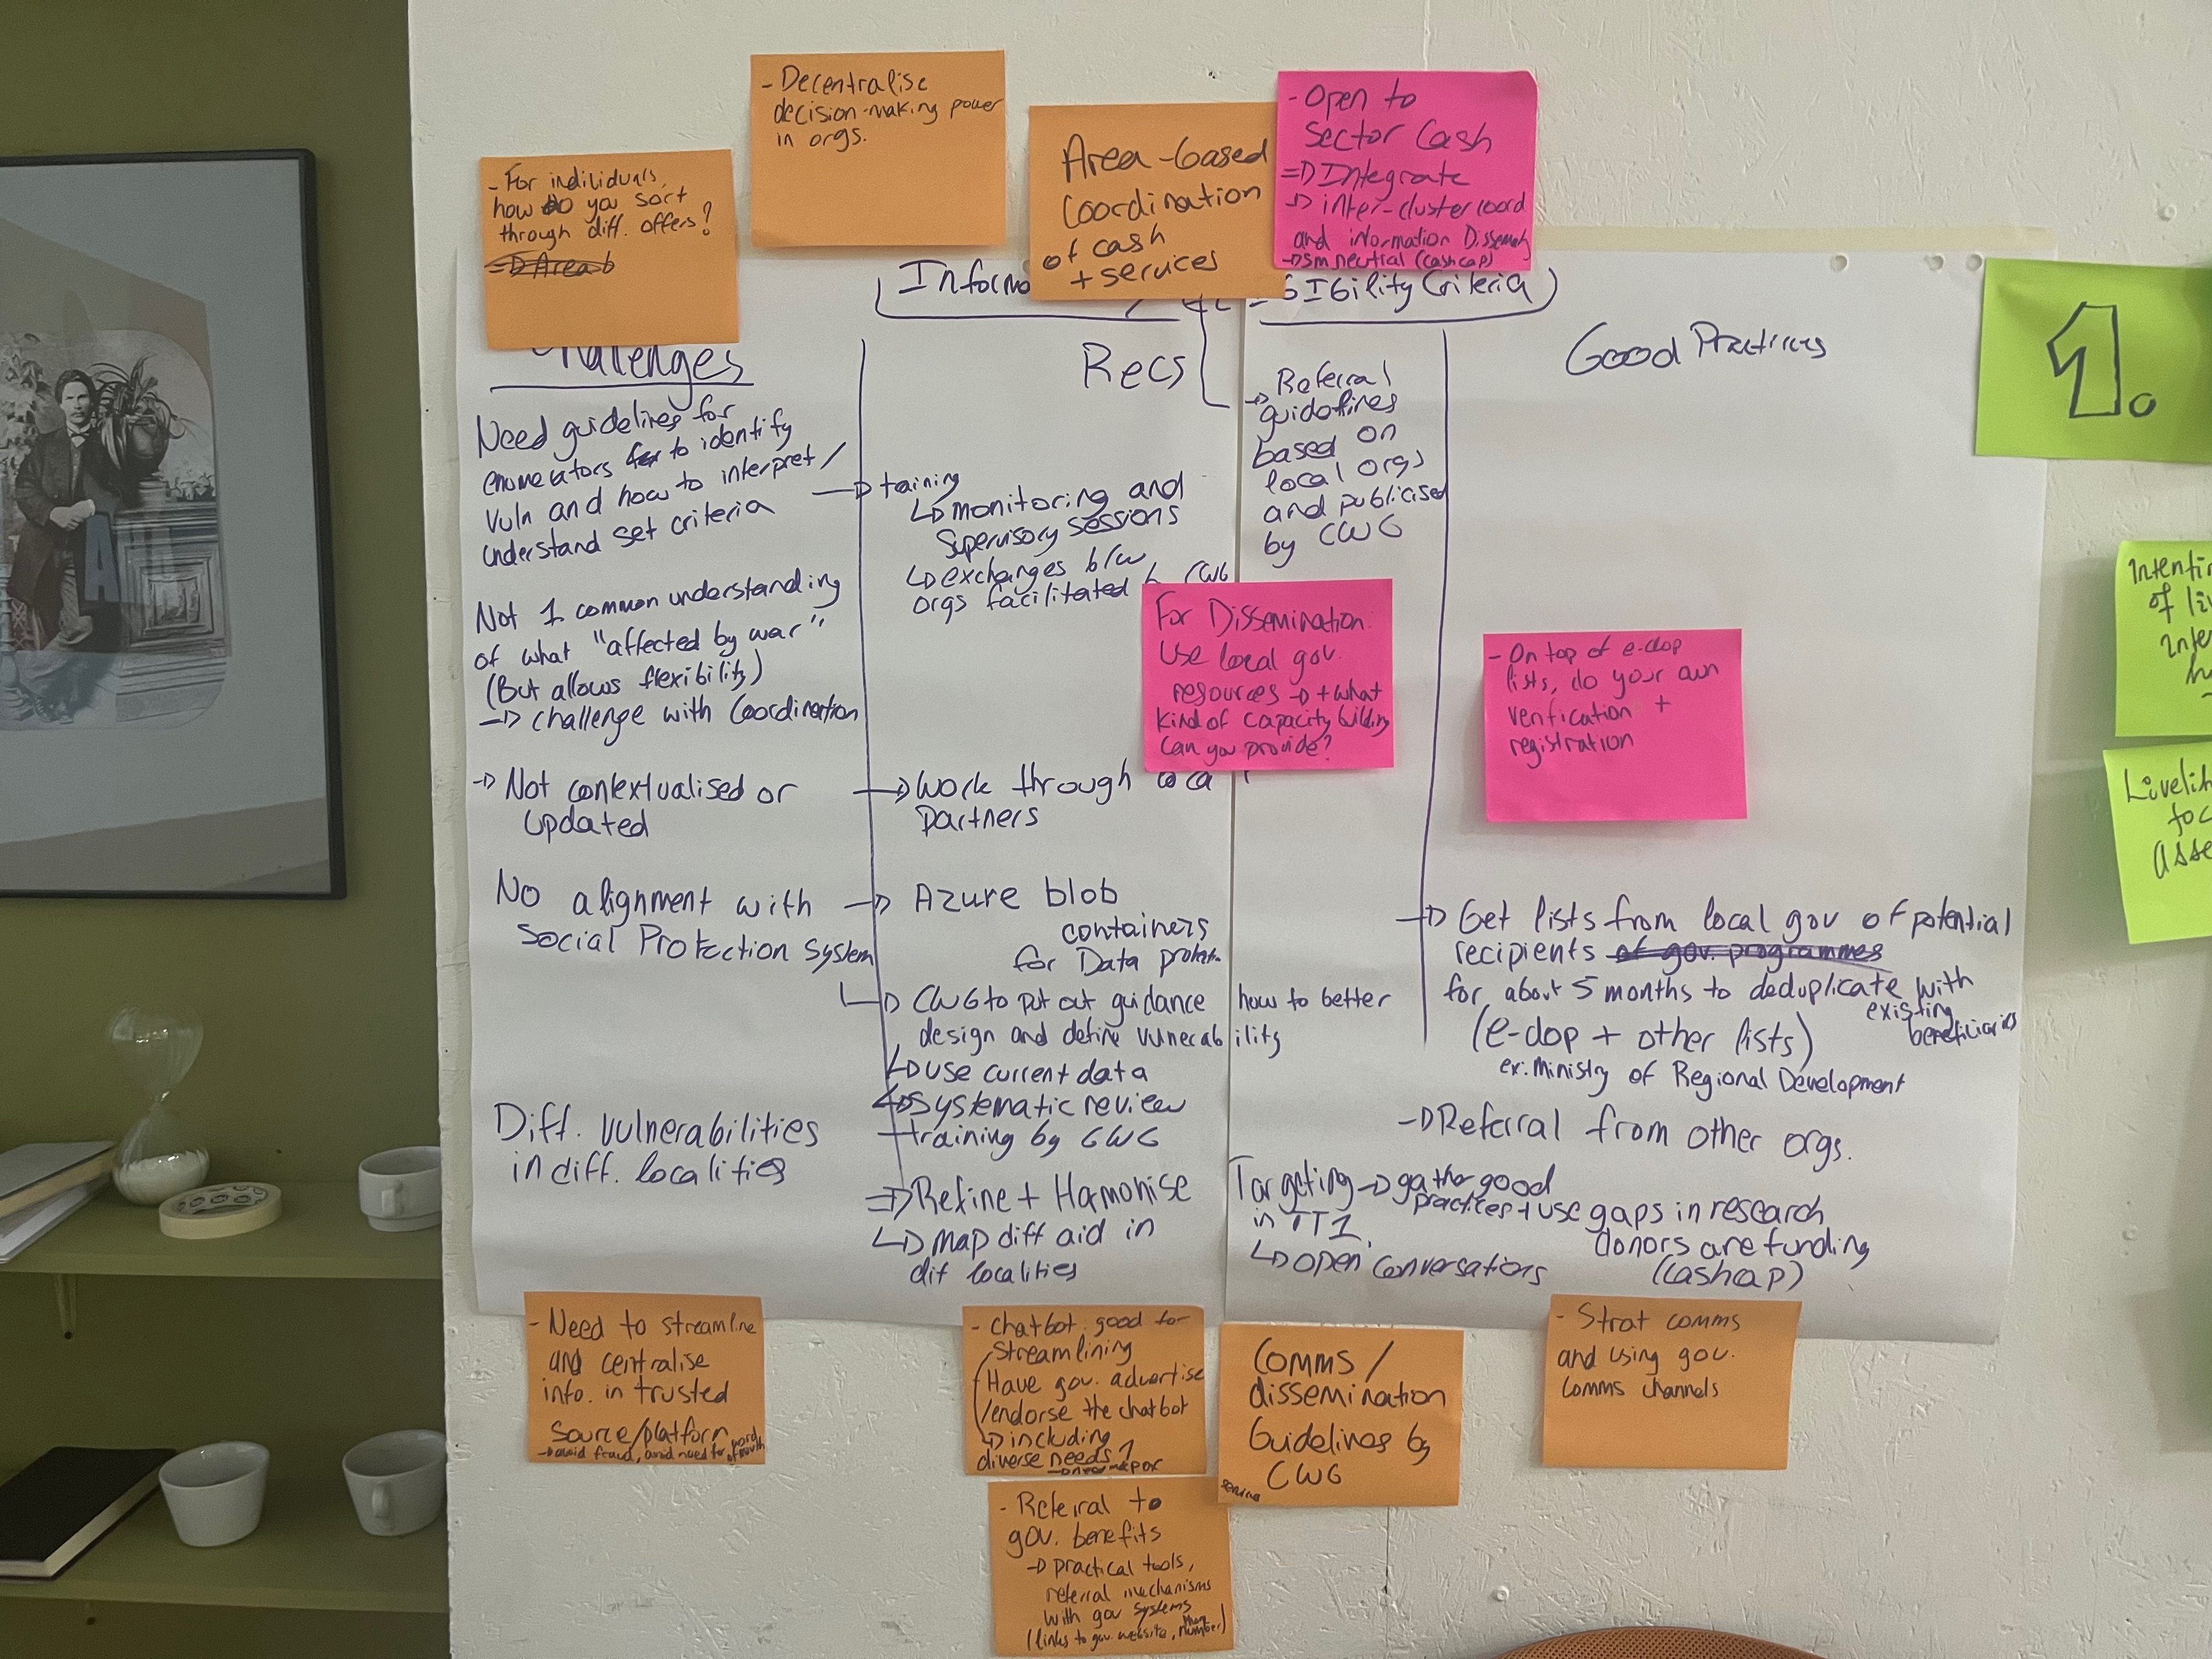 - Decentralise
decision-making power
in orgs.
- For individuals,
how do you sort
through diff. offers?
Area-based
Coordination
of cash
+ services
- Open to
Sector Cash
=> Integrate
-> inter-cluster coord
and information Dissemat
-> sm neutral (cashcap)
Challenges
Need guidelines for
enumerators to identify
vuln and how to interpret/
understand set criteria
Not 1 common understanding
of what "affected by war"
(But allows flexibility)
-> challenge with Coordination
-> Not contextualised or
updated
No alignment with
Social Protection System
Diff. vulnerabilities
in diff. localities
Recs
-> taining
↳ monitoring and
Supervisory sessions
↳ exchanges b/w
orgs facilitated CWG
-> Work through
partners
-> Azure blob
containers
for Data
-> CWG to put out guidance how to better
design and define vulnerability
↳ use current data
↳ systematic review
training by CWG
=> Refine + Harmonise
↳ map diff aid in
dif localities
-> Referral
guidelines
based on
local orgs
and publicised
by CWG
For Dissemination:
Use local gov.
resources -> + what
kind of capacity building
can you provide?
Good Practices
- On top of e-dop
lists, do your own
verification +
registration
-> Get lists from local gov of potential
recipients of gov. programmes
for about 5 months to deduplicate with
existing
beneficiaries
(e-dop + other lists)
ex. Ministry of Regional Development
-> Referral from other orgs.
Targeting -> gather good
in TT1 practices + use gaps in research
donors are funding
↳ open conversations (cashcap)
- Need to streamline
and centralise
info. in trusted
source/platform
-> avoid fraud, avoid need for word of mouth
- Chatbot good for
streamlining
Have gov. advertise
/endorse the chatbot
↳ including
diverse needs?
Comms/
dissemination
Guidelines by
CWG
- Strat comms
and using gov.
comms channels
- Referral to
gov. benefits
-> practical tools,
referral mechanisms
with gov systems
(links to gov. website, number)
1.